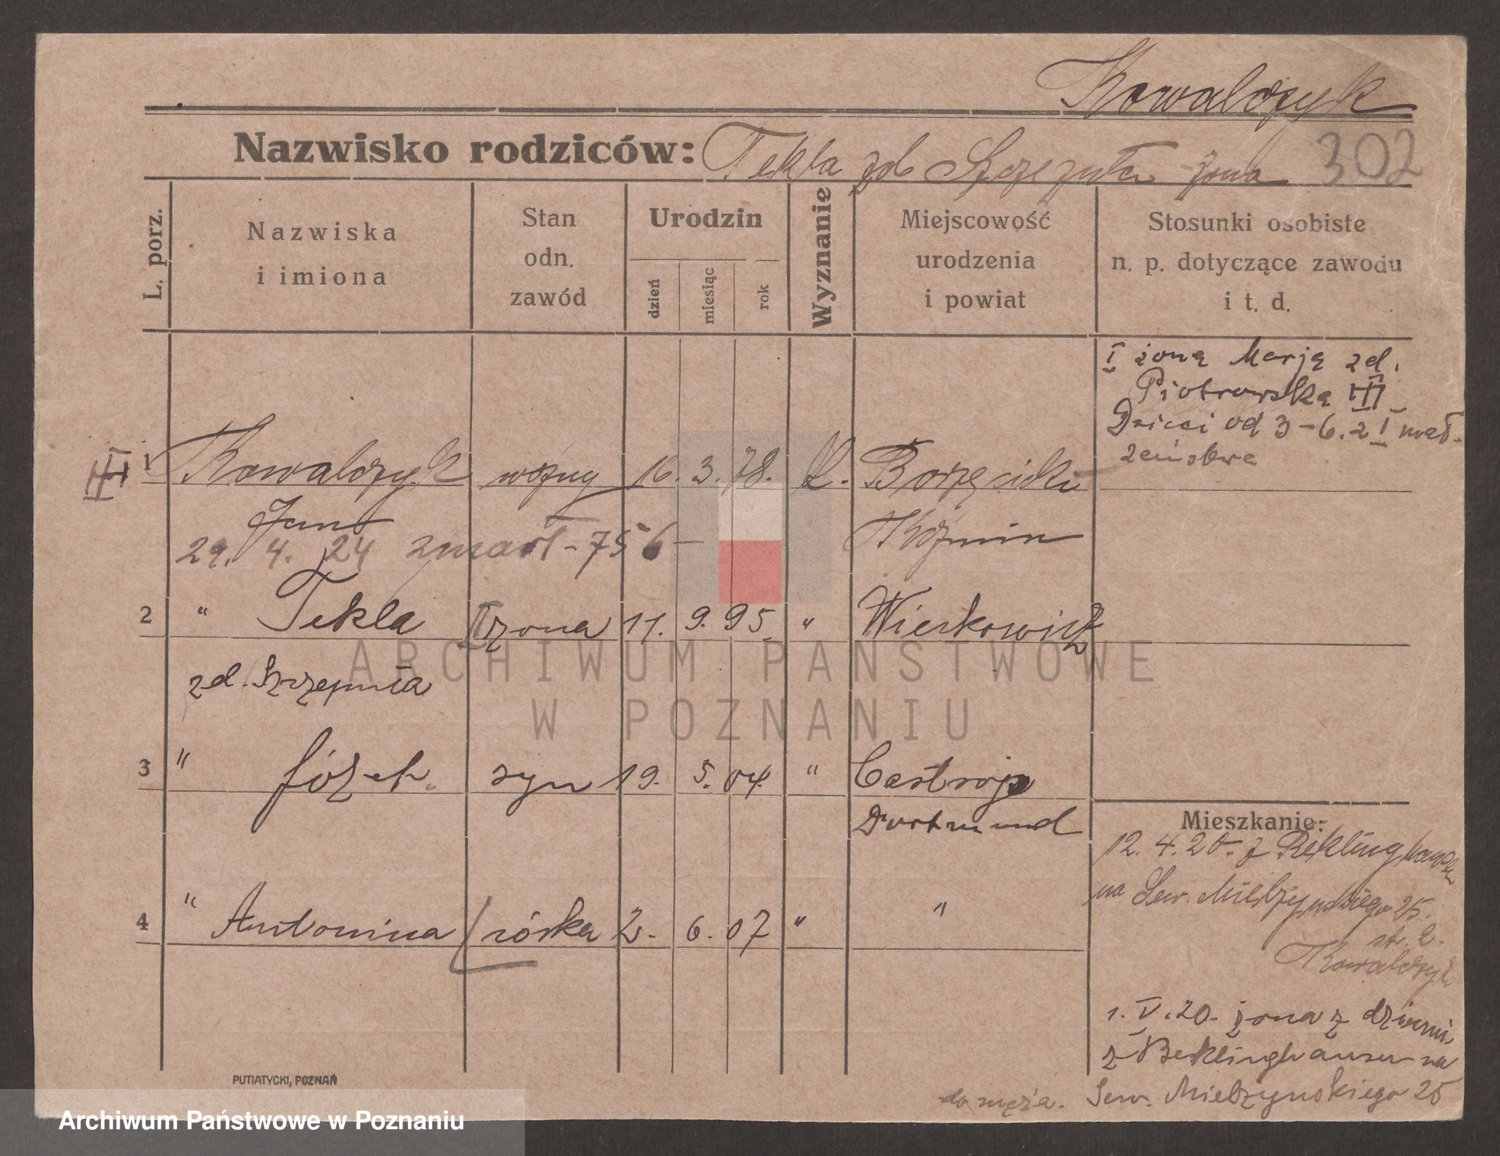 Kowalczyk
Nazwisko rodziców: Tekla zd. żona 302
L. porz.
Nazwiska
i imiona
Stan
odn.
zawód
Urodzin
dzień
miesiąc
rok
Wyznanie
Miejscowość
urodzenia
i powiat
Stosunki osobiste
n. p. dotyczące zawodu
i t. d.
I żoną Marją zd.
Piotrowską III
Dzieci od 3-6. z I mał-
żeńskwe
III 1 Kowalczyk woźny 16. 3. 78. k.
Jan Koźmin
29. 4. 24 zmarł - 756 -
2 " Tekla II żona 11. 9. 95. "
zd.
3 " Józef. syn 19. 5. 04. " Castrop
Dortmund
4 " Antonina córka 2. 6. 07 " "
Mieszkanie:
12. 4. 20. z Reklinghausen
na Sew. Mielżyńskiego 25.
st. 2.
Kowalczyk
1. V. 20. żona z dziećmi
z Reklinghausen na
do męża. Sew. Mielżynskiego 25
PUTIATYCKI, POZNAŃ
ARCHIWUM PAŃSTWOWE
W POZNANIU
Archiwum Państwowe w Poznaniu